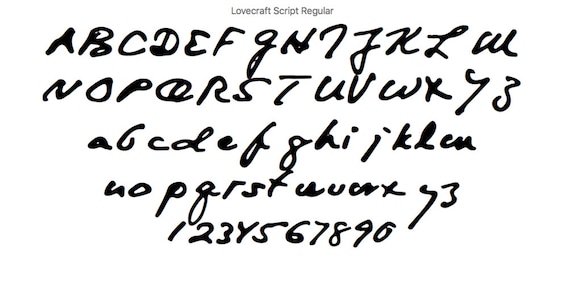 Lovecraft Script Regular
ABCDEFGHIJKLM
NOPQRSTUVWXYZ
abcdefghijklm
nopqrstuvwxyz
1234567890